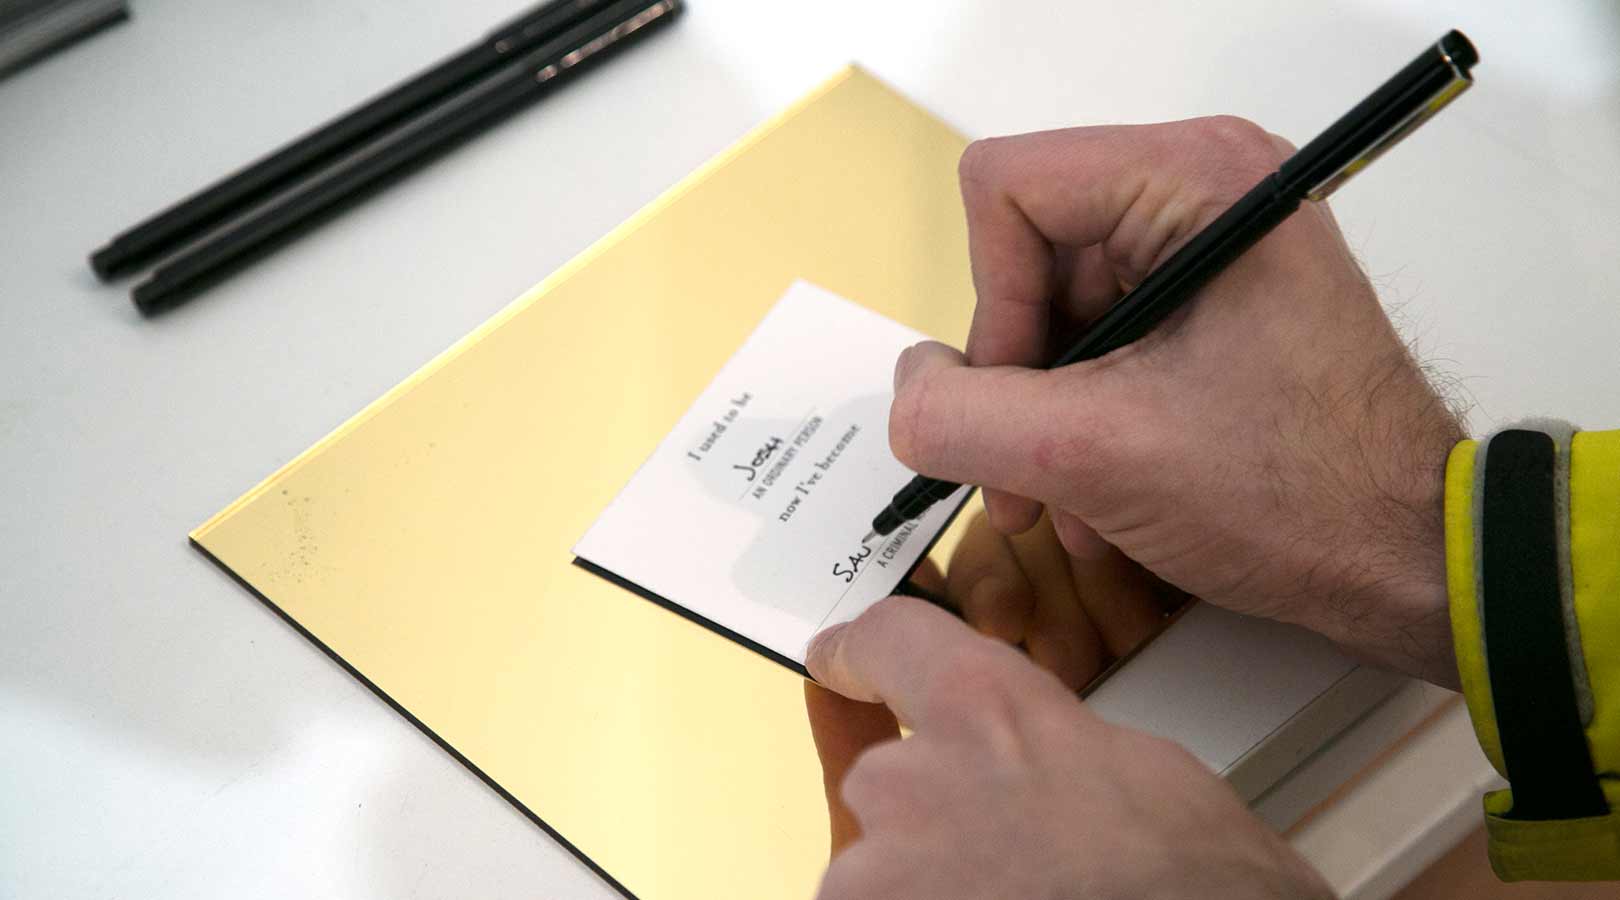 I used to be
JOSH
AN ORDINARY PERSON
now I've become
SAU
A CRIMINAL